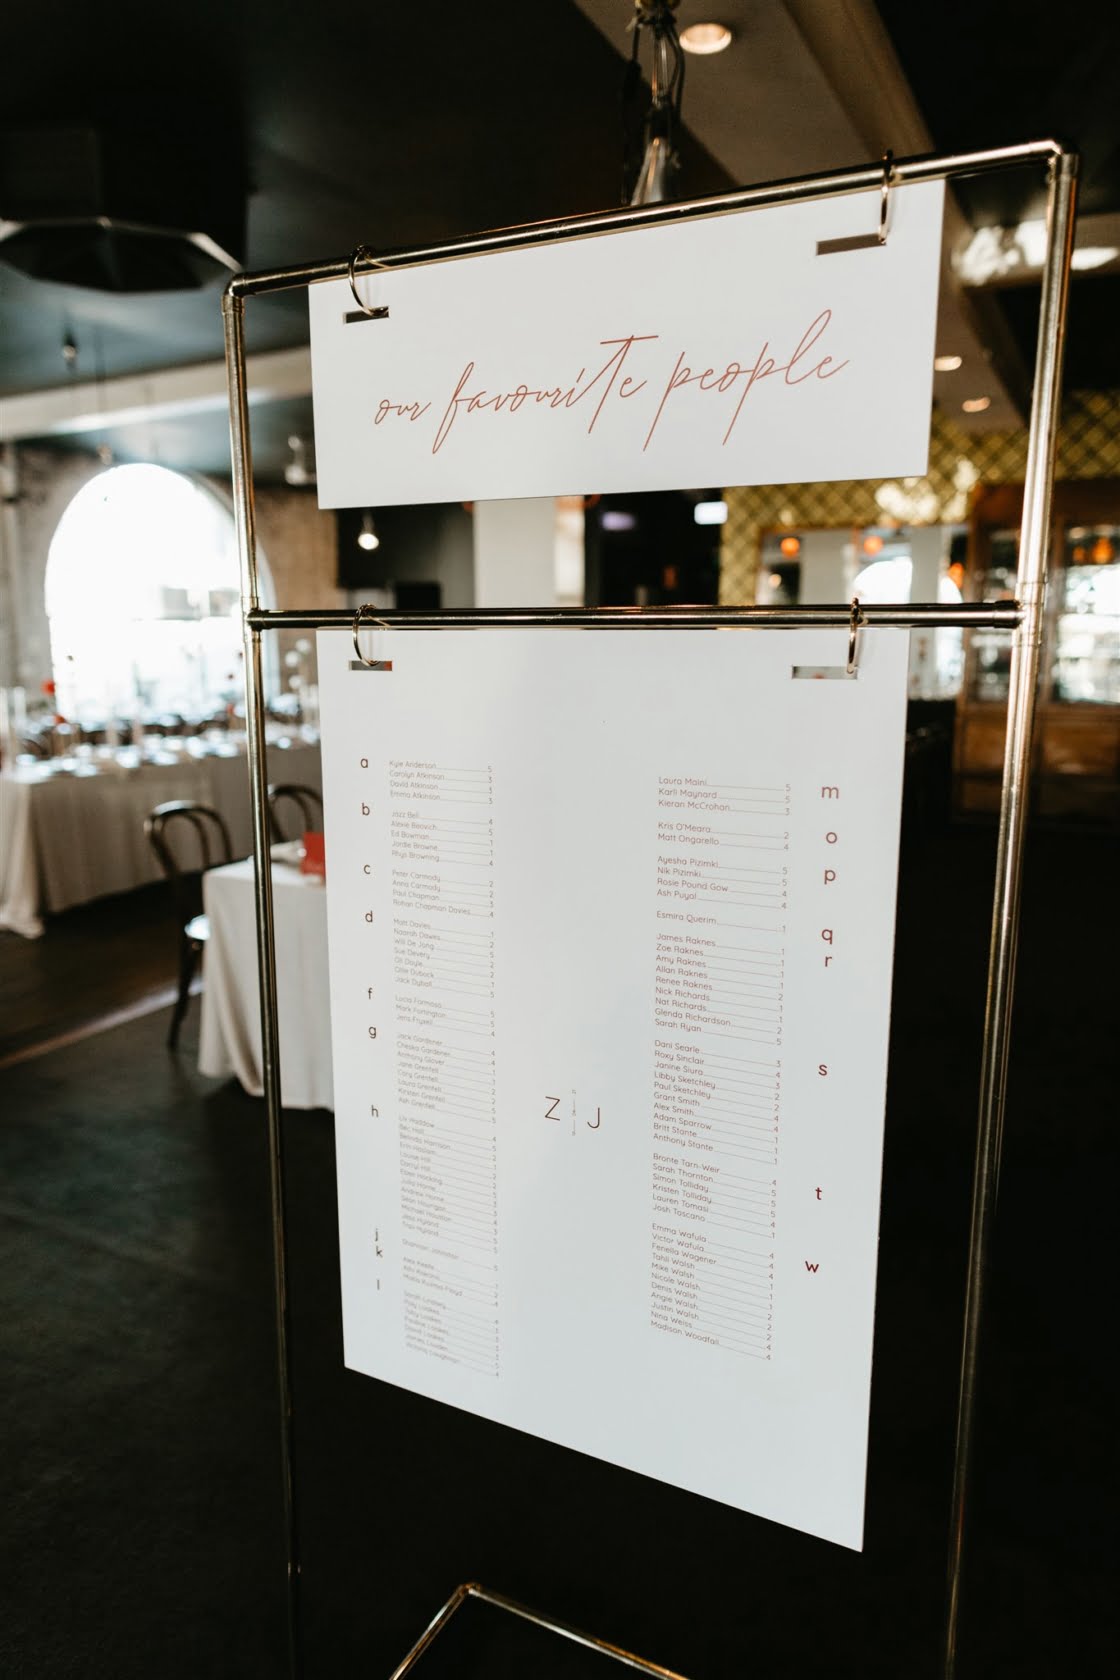 our favourite people
a
Kyle Anderson 5
Carolyn Atkinson 3
David Atkinson 3
Emma Atkinson 3
b
Jazz Bell 4
Alexie Beovich 5
Ed Bowman 1
Jordie Browne 1
Rhys Browning 4
c
Peter Carmody 2
Anna Carmody 2
Paul Chapman 3
Rohan Chapman Davies 4
d
Matt Davies 1
Naomh Davies 2
Will De Jong 2
Sue Devery 5
Oli Doyle 2
Ollie Dubock 2
Jack Dyball 1
5
f
Lucas Formosa 5
Mark Fortington 5
Jens Fryxell 4
g
Jack Gardener 4
Cheska Gardener 4
Anthony Glover 1
Jane Grenfell 1
Cory Grenfell 2
Laura Grenfell 2
Kirsten Grenfell 5
Ash Grenfell 5
h
Liv Haddow 4
Bec Hall 5
Belinda Harrison 2
Erin Heslam
Louise Hill
Darryl Hill
Eden Hocking
Julia Horne
Andrew Horne
Sean Hourigan
Michael Houston
Jess Hyland
Trap Hyland
j
Shannon Johnston 5
k
Keele 1
2
4
l
Sarah Lindsey
Polly Loakes
Toby Loakes
Pauline Loakes
David Loakes
James Losden
Victoria Loughnan
Z J
Laura Maini 5
m
Karli Maynard 5
Kieran McCrohan 3
Kris O'Meara 2
o
Matt Ongarello 4
Ayesha Pizimki 5
p
Nik Pizimki 5
Rosie Pound Gow 4
Ash Puyol 4
Esmira Querim 1
q
James Raknes 1
r
Zoe Raknes 1
Amy Raknes 1
Allan Raknes 1
Renee Raknes 1
Nick Richards 2
Nat Richards 1
Glenda Richardson 2
Sarah Ryan 5
Dani Searle 3
s
Roxy Sinclair 4
Janine Siura 3
Libby Sketchley 2
Paul Sketchley 2
Grant Smith 1
Alex Smith 4
Adam Sparrow 1
Britt Stante 1
Anthony Stante 1
Bronte Tarn-Weir 4
t
Sarah Thornton 5
Simon Tolliday 5
Kristen Tolliday 5
Lauren Tomasi 4
Josh Toscano 1
Emma Wafula 4
w
Victor Wafula 4
Fenella Wagener 4
Tahli Walsh 1
Mike Walsh 1
Nicole Walsh 1
Denis Walsh 2
Angie Walsh 2
Justin Walsh 2
Nina Weiss 4
Madison Woodfall 4